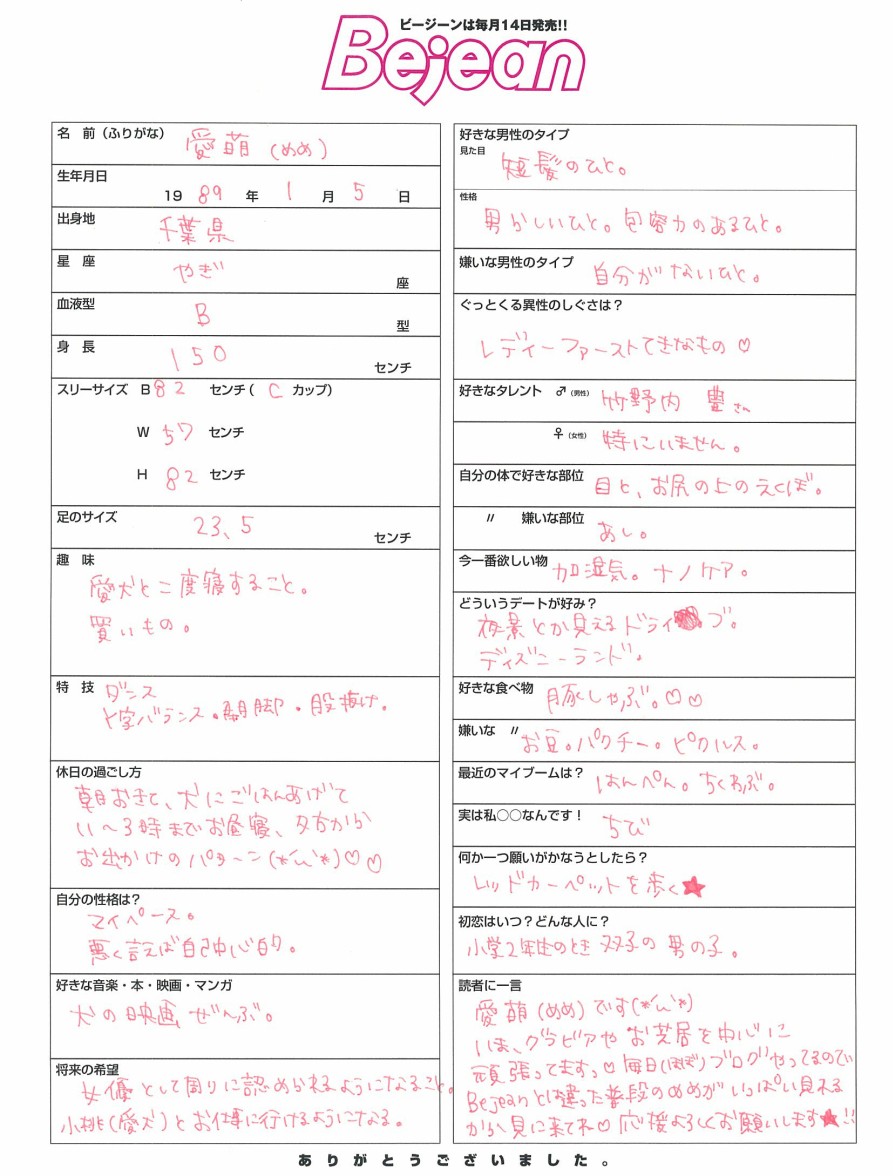 ビージーンは毎月14日発売!!
Bejean
名　前（ふりがな）　愛萌（めめ）
生年月日
19 89 年 1 月 5 日
出身地　千葉県
星　座　やぎ　座
血液型　B　型
身　長　150　センチ
スリーサイズ　B 82 センチ（ C カップ）
W 57 センチ
H 82 センチ
足のサイズ　23、5　センチ
趣　味
愛犬と二度寝すること。
買いもの。
特　技　ダンス
Y字バランス。開脚・股抜け。
休日の過ごし方
朝おきて、犬にごはんあげて
い〜3時までお昼寝、夕方から
お出かけのパターン(*´ω`*)♡♡
自分の性格は？
マイペース。
悪く言えば自己中心的。
好きな音楽・本・映画・マンガ
犬の映画ぜんぶ。
将来の希望
女優として周りに認められるようになること。
小桃(愛犬)とお仕事に行けるようになる。
好きな男性のタイプ
見た目　短髪のひと。
性格
男らしいひと。包容力のあるひと。
嫌いな男性のタイプ　自分がないひと。
ぐっとくる異性のしぐさは？
レディーファーストてきなもの♡
好きなタレント　♂（男性）　竹野内　豊さん
♀（女性）　特にいません。
自分の体で好きな部位　目と、お尻の上のえくぼ。
〃　嫌いな部位　あし。
今一番欲しい物　加湿気。ナノケア。
どういうデートが好み？
夜景とか見えるドライブ。
ディズニーランド。
好きな食べ物　豚しゃぶ。♡♡
嫌いな　〃　お豆。パクチー。ピクルス。
最近のマイブームは？　はんぺん。ちくわぶ。
実は私〇〇なんです！　ちび
何か一つ願いがかなうとしたら？
レッドカーペットを歩く★
初恋はいつ？どんな人に？
小学2年生のとき双子の男の子。
読者に一言
愛萌(めめ)です(*´ω`*)
いま、グラビアやお芝居を中心に
頑張ってますっ♡毎日(ほぼ)ブログやってるので
Bejeanとは違った普段のめめがいっぱい見れる
から見に来てね♡応援よろしくお願いします★!!
ありがとうございました。